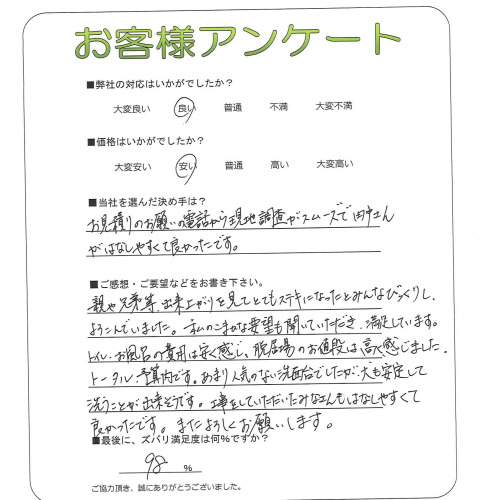 お客様アンケート
■弊社の対応はいかがでしたか？
大変良い 良い 普通 不満 大変不満
■価格はいかがでしたか？
大変安い 安い 普通 高い 大変高い
■当社を選んだ決め手は？
お見積りのお願いの電話から現地調査がスムーズで田中さん
がはなしやすくて良かったです。
■ご感想・ご要望などをお書き下さい。
親や兄弟等、出来上がりを見てとてもステキになったとみんなびっくりし、
よろこんでいました。私のこまかな要望も聞いていただき、満足しています。
トイレ・お風呂の費用は安く感じ、脱居場のお値段は高く感じました。
トータル、予算内です。あまり人気のない洗面台でしたが、犬も安定して
洗うことが出来そうです。工事をしていただいたみなさんもはなしやすくて
良かったです。またよろしくお願いします。
■最後に、ズバリ満足度は何％ですか？
98 ％
ご協力頂き、誠にありがとうございました。